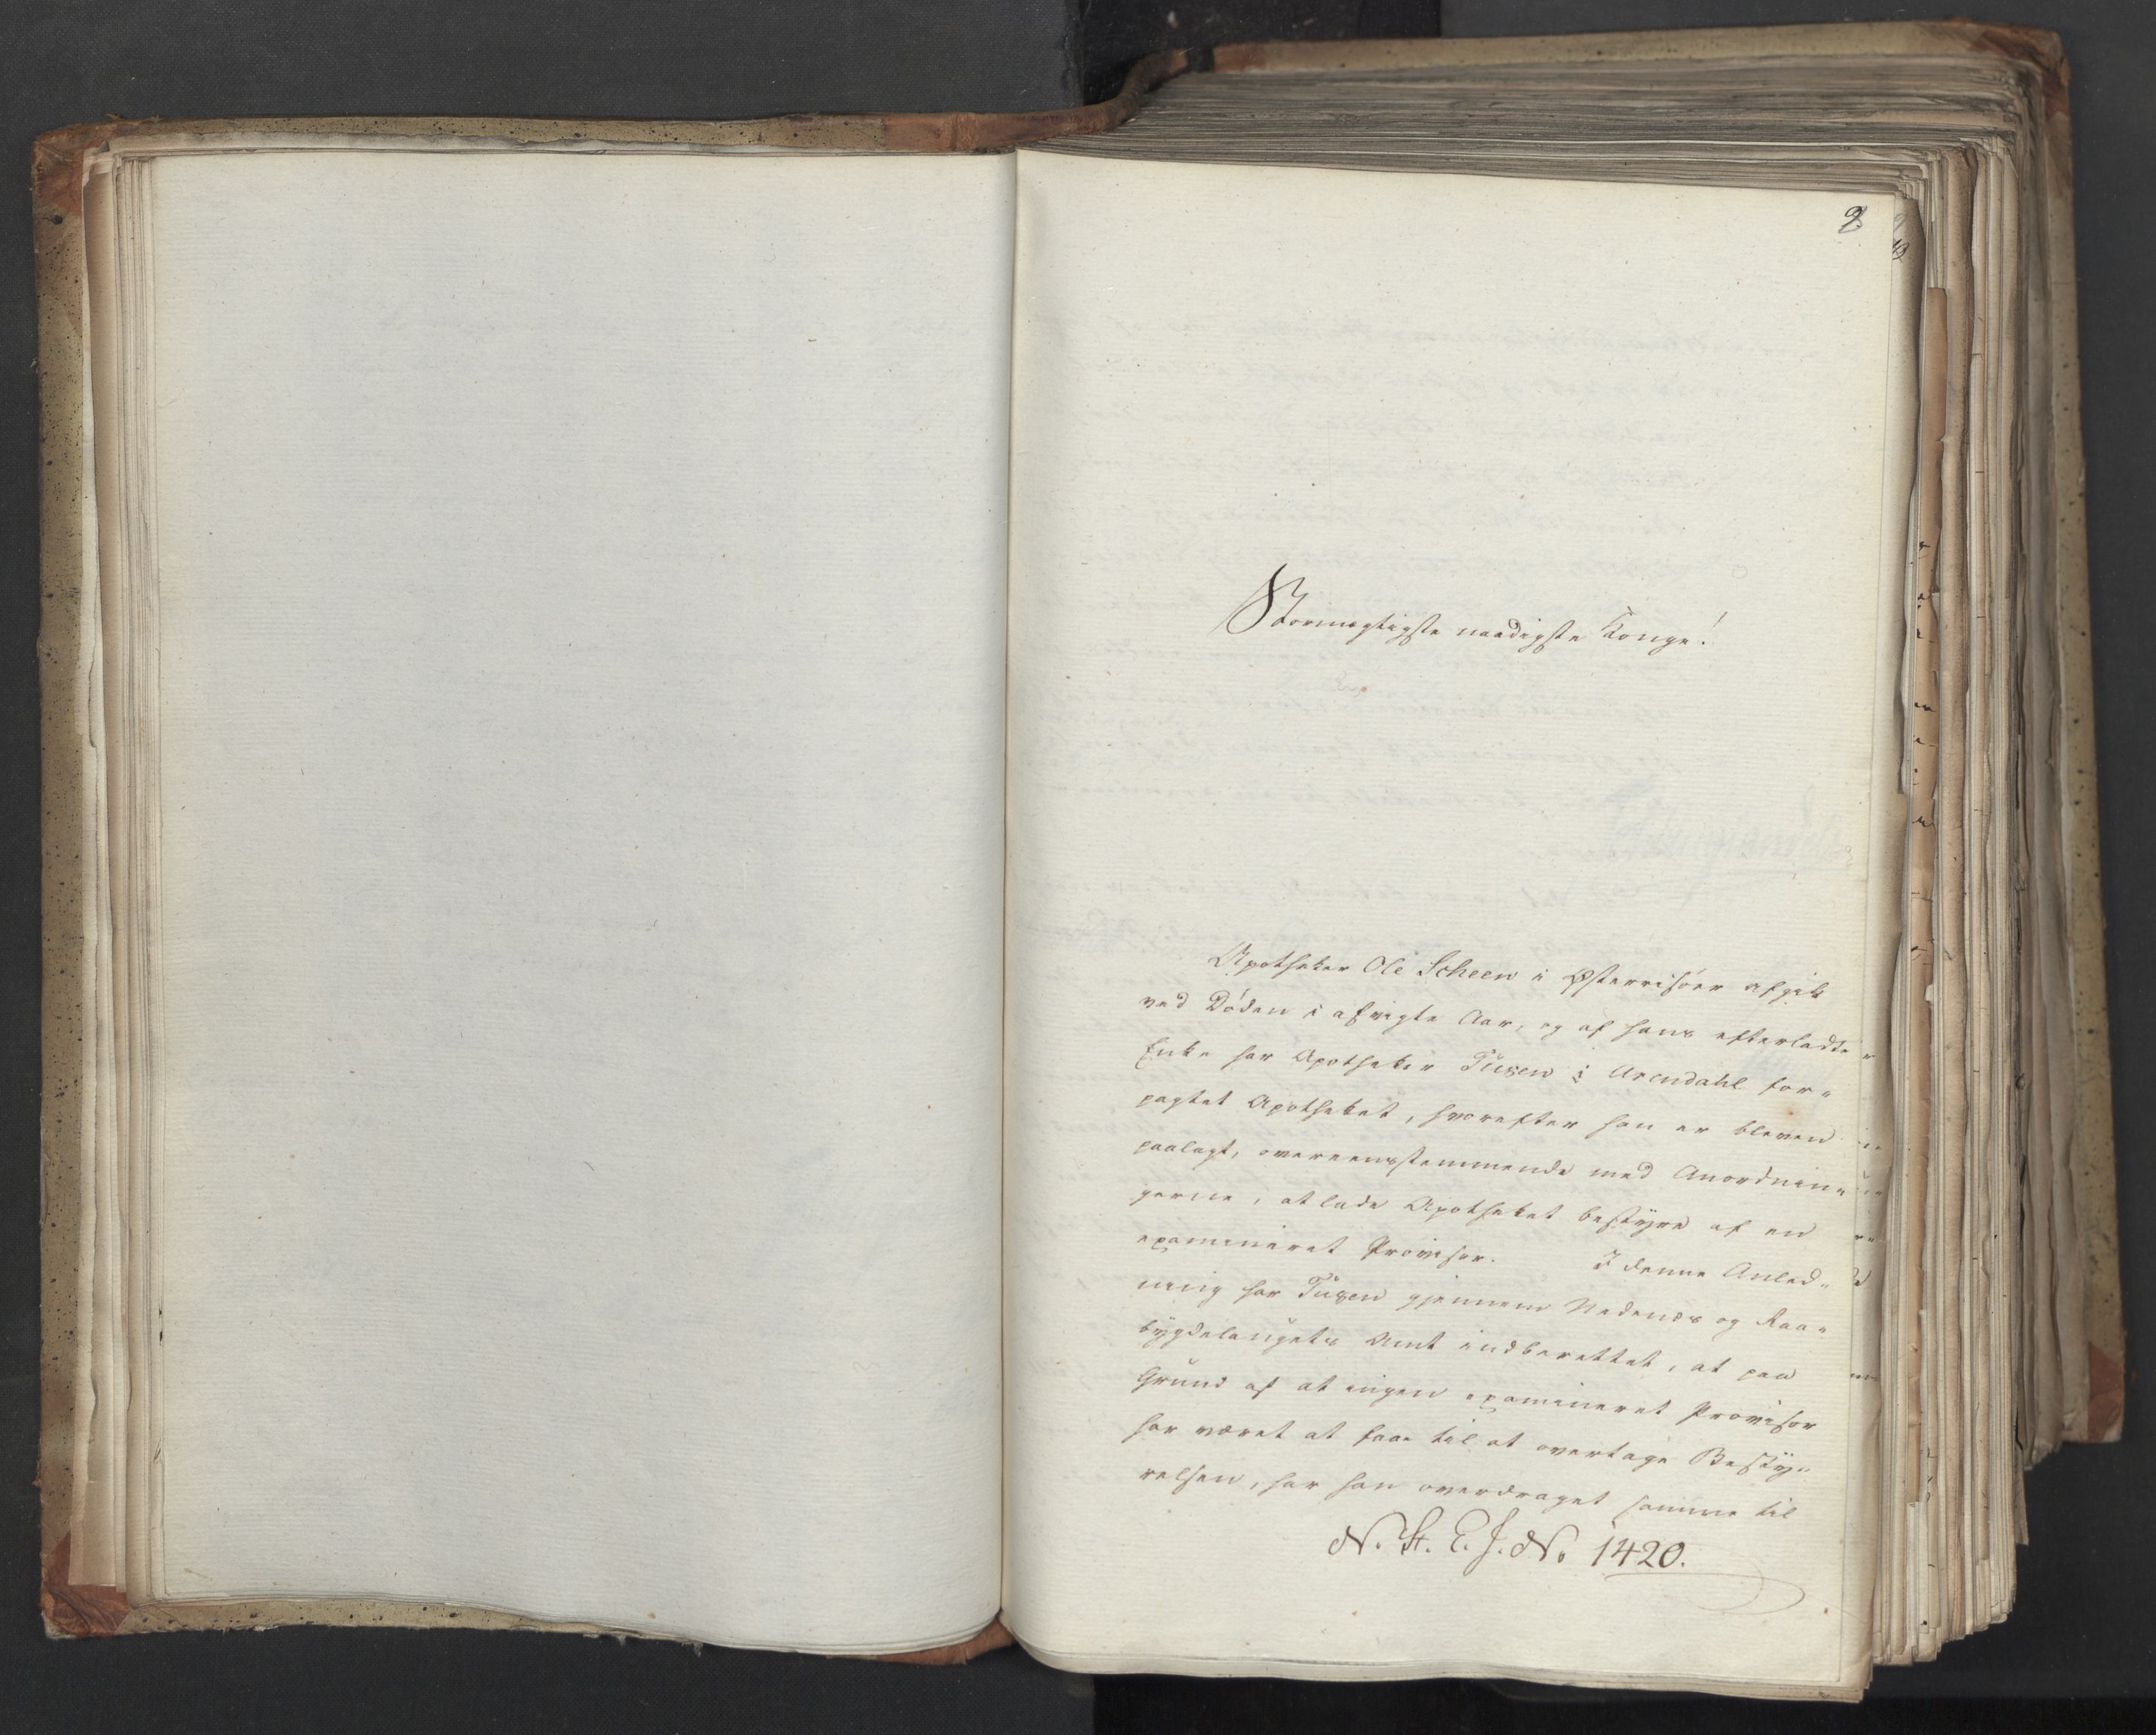 9
Stormægtigste naadigste Konge!
Apotheker Ole Scheen i Østerrisöer afgik
ved Döden i afvigte Aar, og af hans efterladte
Enke har Apotheker Tuxen i Arendahl for„
pagtet Apotheket, hvorefter han er bleven
paalagt, overeensstemmende med Anordnin„
gerne, at lade Apotheket bestyre af en
examineret Provisor. I denne Anled„
ning har Tuxen gjennem Nedenæs og Raa„
bygdelaugets Amt indberettet, at paa
Grund af at ingen examineret Provisor
har været at faae til at overtage Besty„
relsen, har han overdraget samme til
N. St. E. J. No 1420.